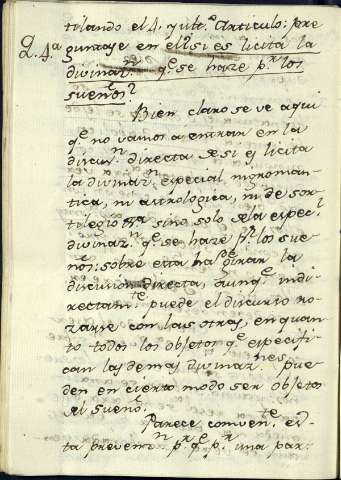 titando el 4. y ult.º Articulo; pre
Q. 4.ª guntase en ell.º si es licita la
divinaz.n q.e se haze p.r los
sueños?
Bien claro se ve aqui
q.e no vamos a entrar en la
discus.n directa de si es licita
la divinaz.n especial nigroman-
tica, ni astrologica, ni de sor-
tilegio sino solo de la espec.l
divinaz.n q.e se haze p.r los sue-
ños: sobre esta ha de girar la
discusion directa, aunq.e indi-
rectam.te puede el discurso ro-
zarse con las otras, en quan-
to todos los objetos q.e especifi-
can las demas divinaz.nes pue-
den en cierto modo ser objetos
del sueño.
Parece conven.te es-
ta prevenz.n p.r q.e p.r una par-